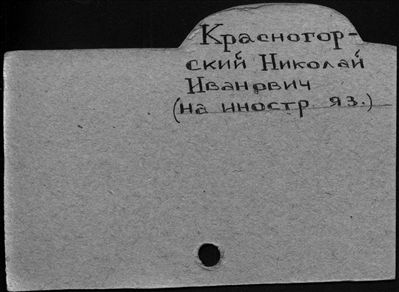 Красногор-
ский Николай
Иванович
(на иностр яз.)